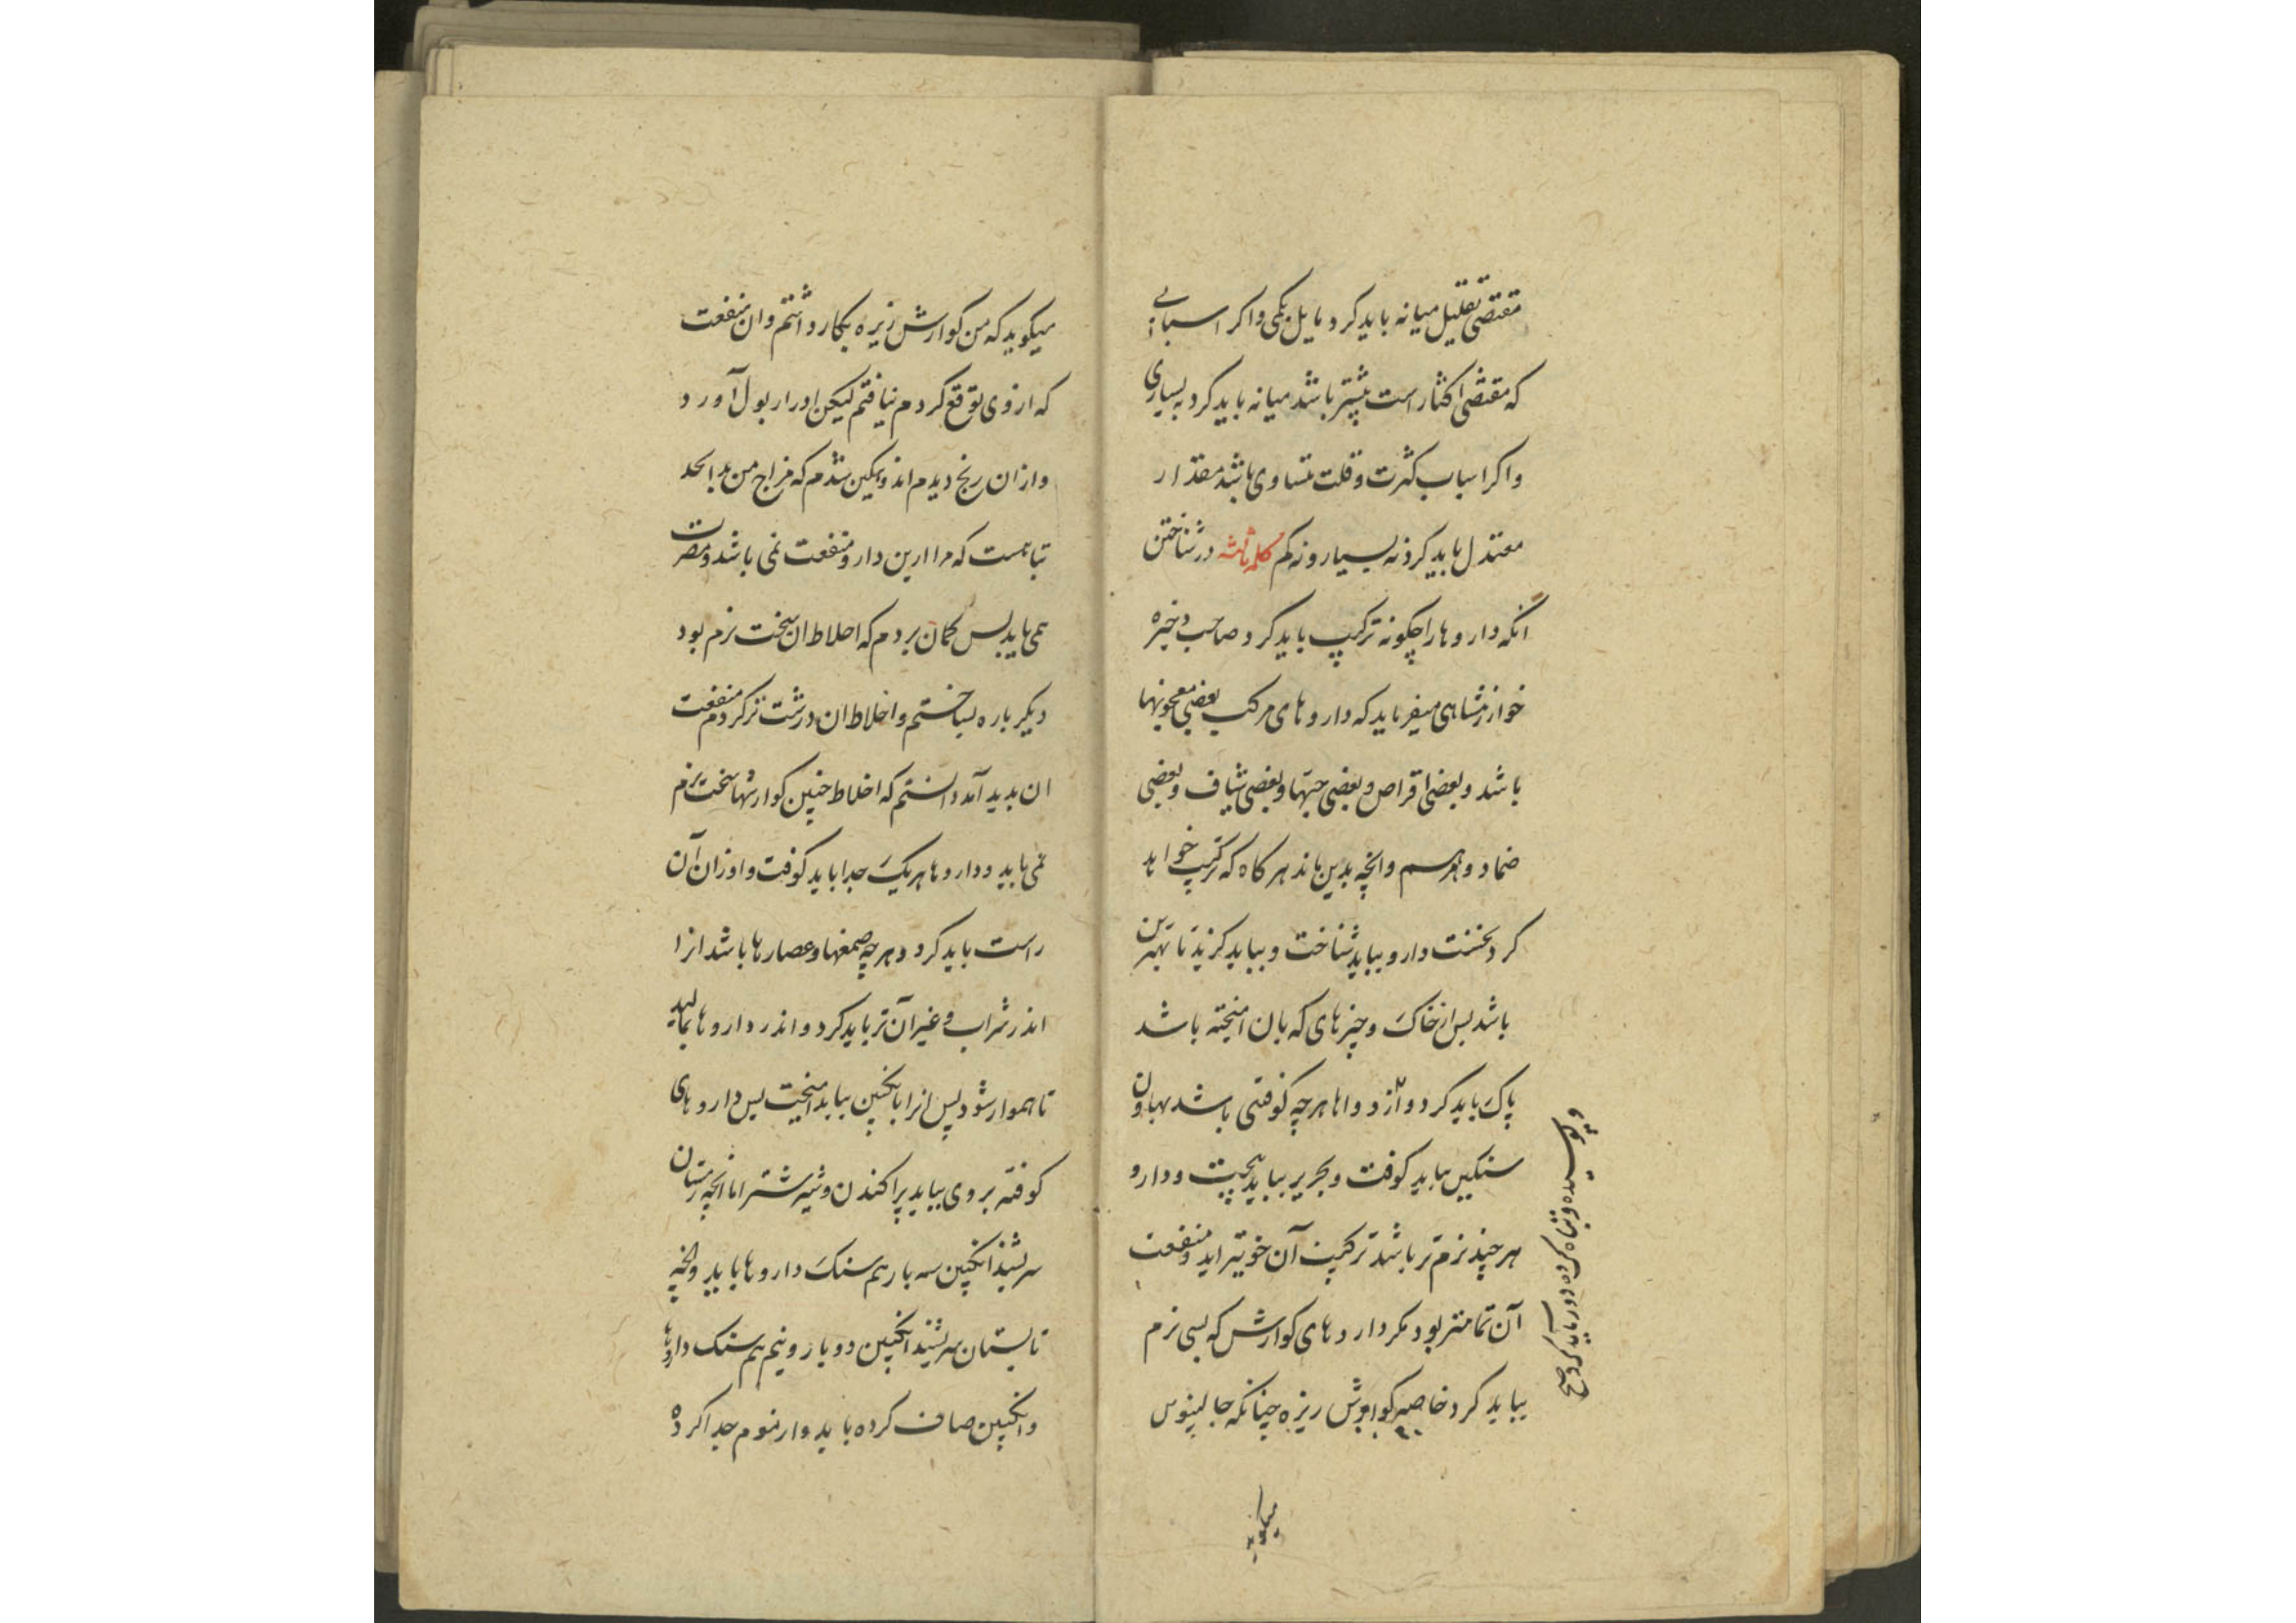 مقتضی تقلیل میانه باید کرد مایل بکمی واکر اسبابی
که مقتضی اکثار است بیشتر باشد میانه باید کرد به بسیاری
واکر اسباب کثرت وقلت متساوی باشد مقدار
معتدل باید کرد نه بسیار ونه کم کلمه ثالثه در شناختن
انکه داروها را چکونه ترکیب باید کرد صاحب ذخیره
خوارزمشاهی میفرماید که داروهای مرکب بعضی معجونها
باشد وبعضی اقراص وبعضی حبها وبعضی شیاف وبعضی
ضماد ومرهم وانچه بدین ماند هرکاه که ترکیب خواهد
کرد نخست دارو بباید شناخت وبباید کزید تا بهترین
باشد پس از خاک وچیزهای که بان امیخته باشد
پاک باید کرد واز دواها هرچه کوفتنی باشد بهاون
سنکین بباید کوفت وبحریر بباید بیخت ودارو
هرچند نرم تر باشد ترکیب آن خوبتر اید ومنفعت
آن تمامتر بود مکر داروهای کوارش که بسی نرم
بباید کرد خاصه کوارش زیره چنانکه جالینوس
وپوسیده وتباه کرده دور باید کرد صح
میکوید
میکوید که من کوارش زیره بکار داشتم وان منفعت
که از وی توقع کردم نیافتم لیکن ادرار بول آورد
وازان رنج دیدم اندوهکین شدم که مزاج من بدانحد
تباهست که مرا ازین دارو منفعت نمی باشد ومضرت
همی یابد پس کمان بردم که اخلاط ان سخت نرم بود
دیکر باره بساختم واخلاط ان درشت تر کردم منفعت
ان بدید آمد دانستم که اخلاط چنین کوارشها سخت نرم
نمی باید وداروها هریک جدا باید کوفت واوزان آن
راست باید کرد وهرچه صمغها وعصارها باشد انرا
اندر شراب وغیر آن تر باید کرد واندر داروها بمالید
تا هموار شود پس انرا با نکبین بباید امیخت پس داروهای
کوفته بروی بباید پراکندن وبیشتر اما انچه زمستان
سرشند انکبین سه بار هم سنک داروها باید وانچه
تابستان سرشند انکبین دو بار ونیم هم سنک داروها
وانکبین صاف کرده باید واز موم جدا کرده